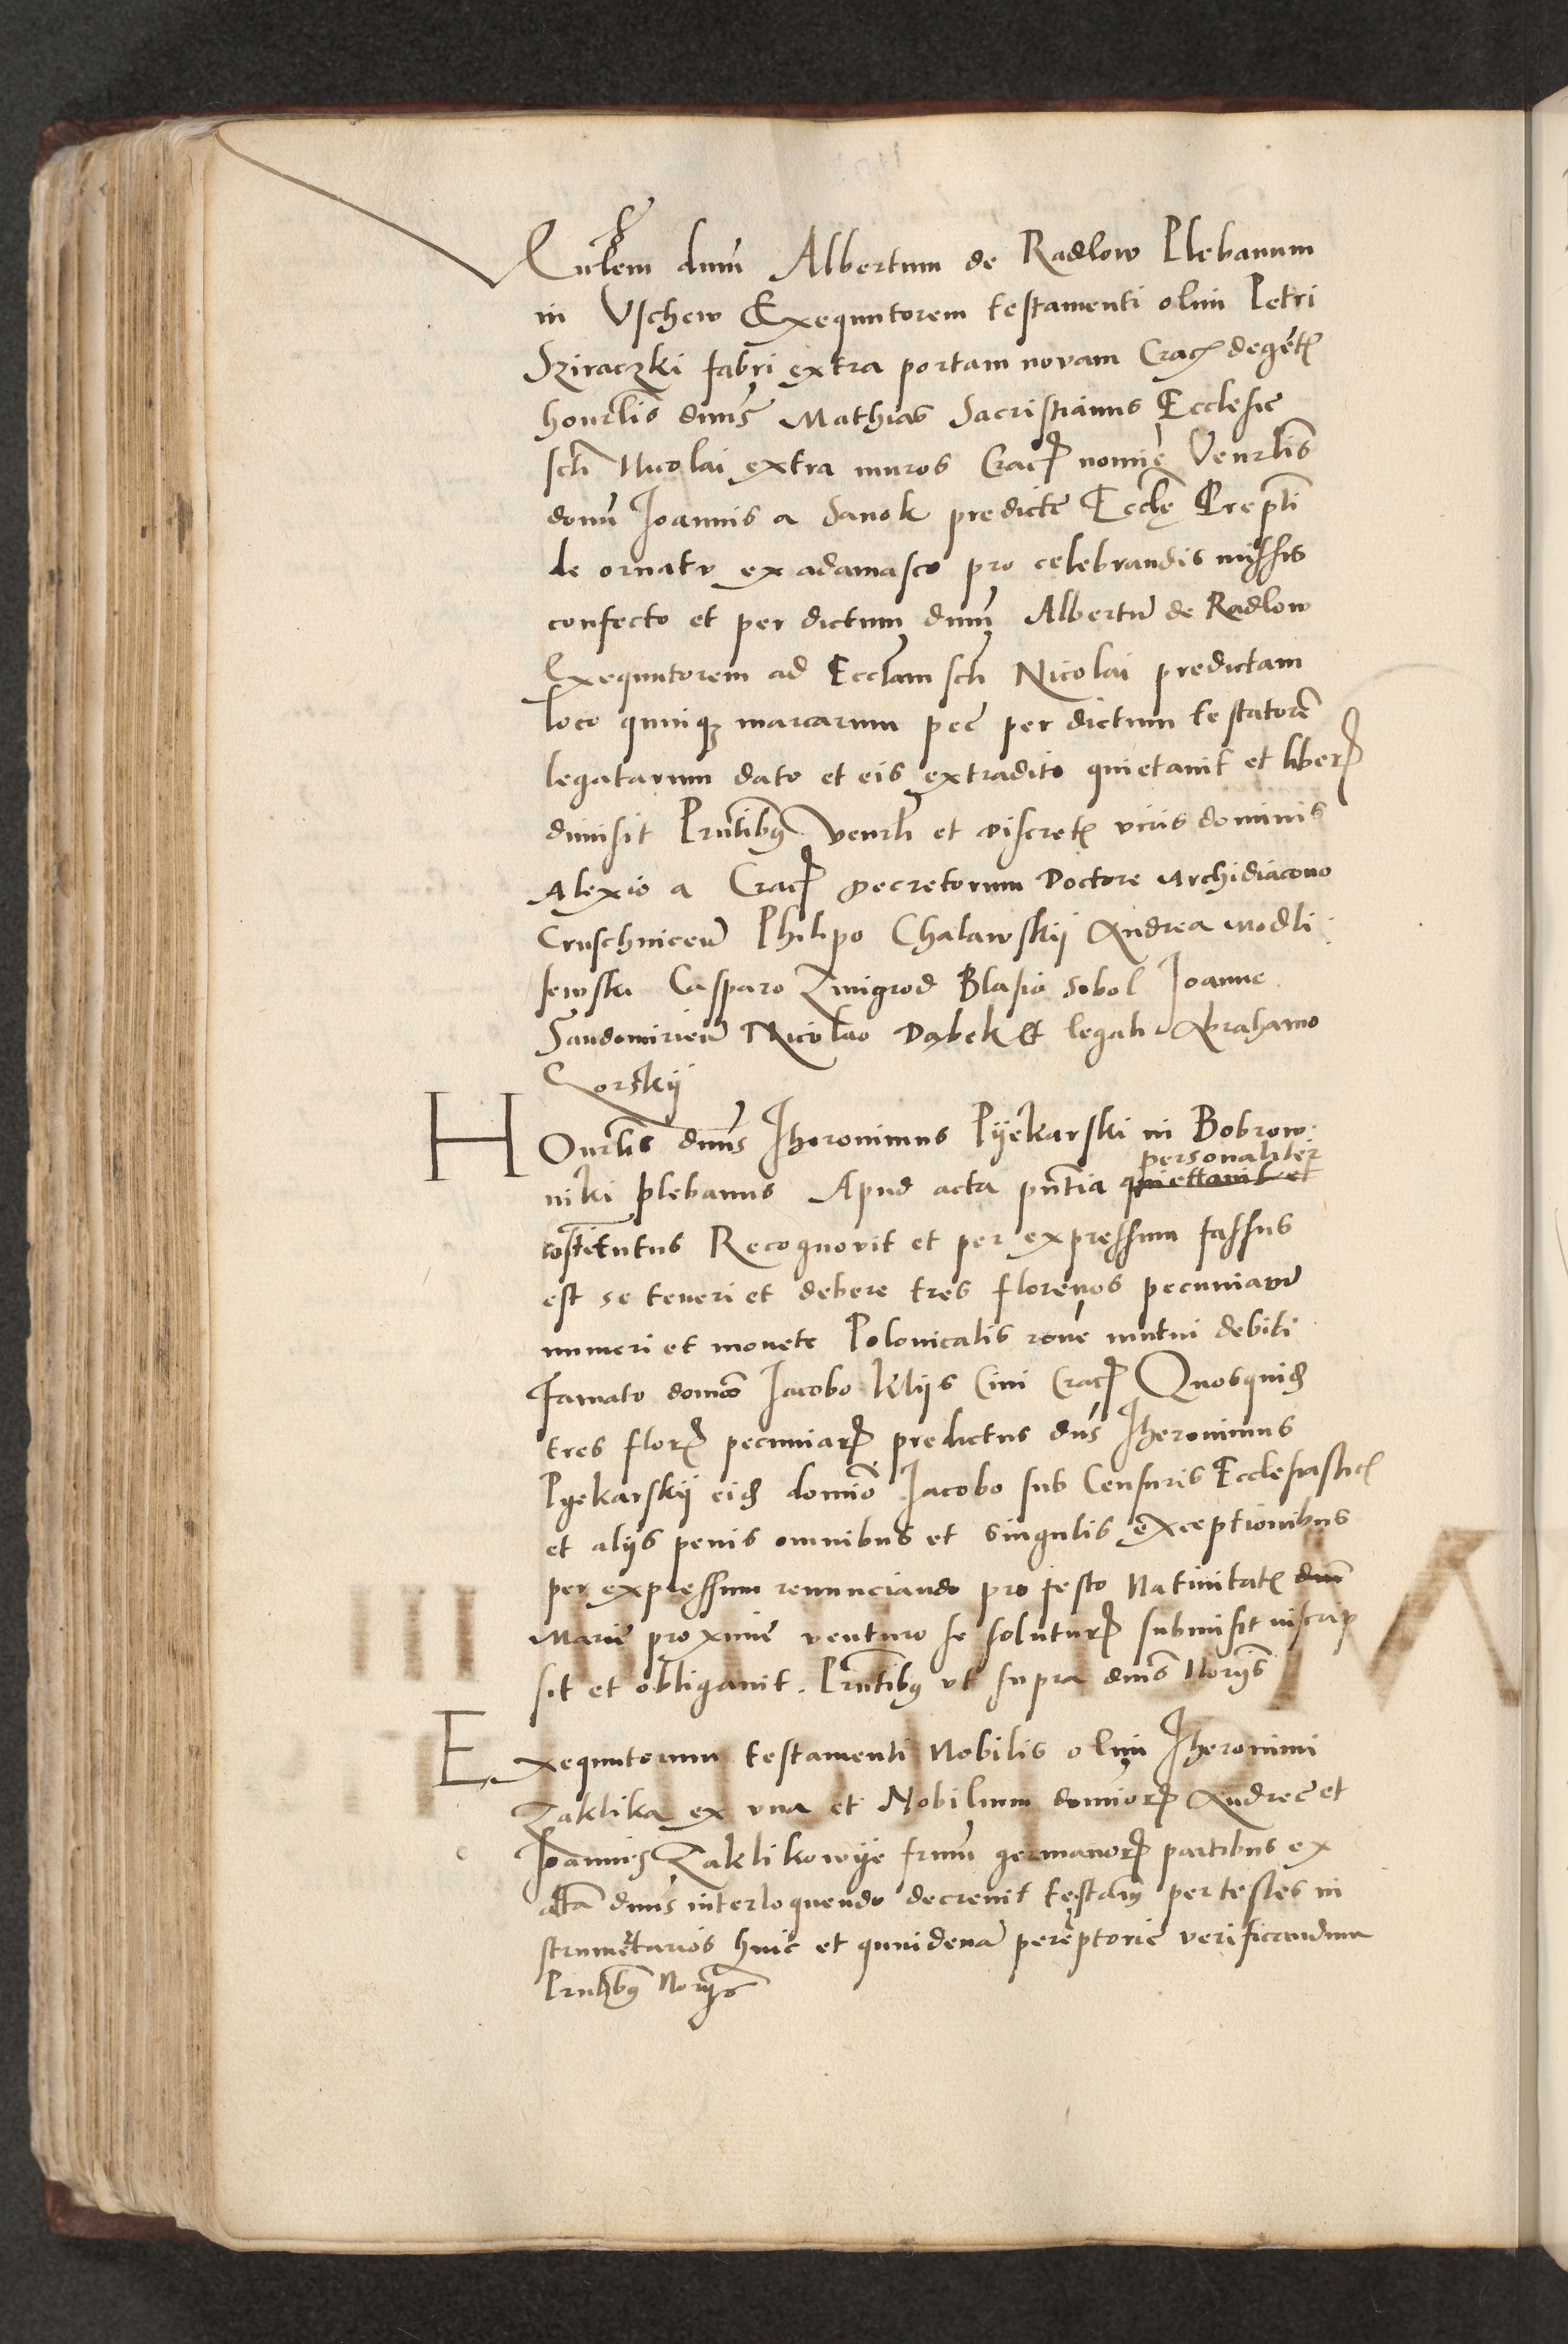 dnm̄ Albertum de Radlow Plebanum
in Vschew Exequutorem testamenti olim Petri
Sziraczki fabri extra portam novam Crac̄ degēt̄
honrlis dnus Mathias Sacristianus Ecclesie
scti Nicolai extra muros Crac̄ nomīe Venrlis
domī Joannis a Sanok predicte Eccle
de ornatu ex adamasco pro celebrandis missis
confecto et per dictum dnm̄ Albertū de Radlow
Exequutorem ad Ecclam scti Nicolai predictam
loco quinqz marcarum pec̄ per dictum testatorē
legatarum dato et eis extradito quietavit et liber̄
dimisit Pn̄tibus venrli et discret̄ viris dominis
Alexio a Crac̄ Decretorum Doctore Archidiacono
Cruschvicen̄ Philipo Chalawskij Andrea Modli
sewski Casparo Zmigrod Blasio Sobol Joanne
Sandomirien̄ Nicolao Dąbek et legali Abrahamo
Gorskij
HOnrlis dnus Jheronimus Pijekarski in Bobrow
niki plebanus Apud acta pn̄tia quiettavit et personaliter
cōstitutus Recognovit et per expressum fassus
est se teneri et debere tres florenos pecuniarū
numeri et monete Polonicalis rōne mutui debiti
Famato domīo Jacobo Klijs Civi Crac̄ Quosquid̄
tres flor̄ pecuniar̄ predictus dn̄s Jheronimus
Pyekarskij eid̄ domīo Jacobo sub Censuris Ecclesiastic̄
et alijs penis omnibus et singulis exceptionibus
per expressum renunciando pro festo Nativitat̄ dnī
Marie proxime venturo se solutur̄ submisit inscrip
sit et obligavit. Pn̄tibus vt supra dnis Norijs
Exequutorum testamenti Nobilis olim Jheronimi
Zaklika ex vna et Nobilium domīor̄ Andree et
Joannis Zaklikowije frum̄ germanor̄ partibus ex
altā dnus interloquendo decrevit testam̄ per testes in
strumētarios hinc et quindenā perēptorie verificandum
Pn̄tibus Norijs